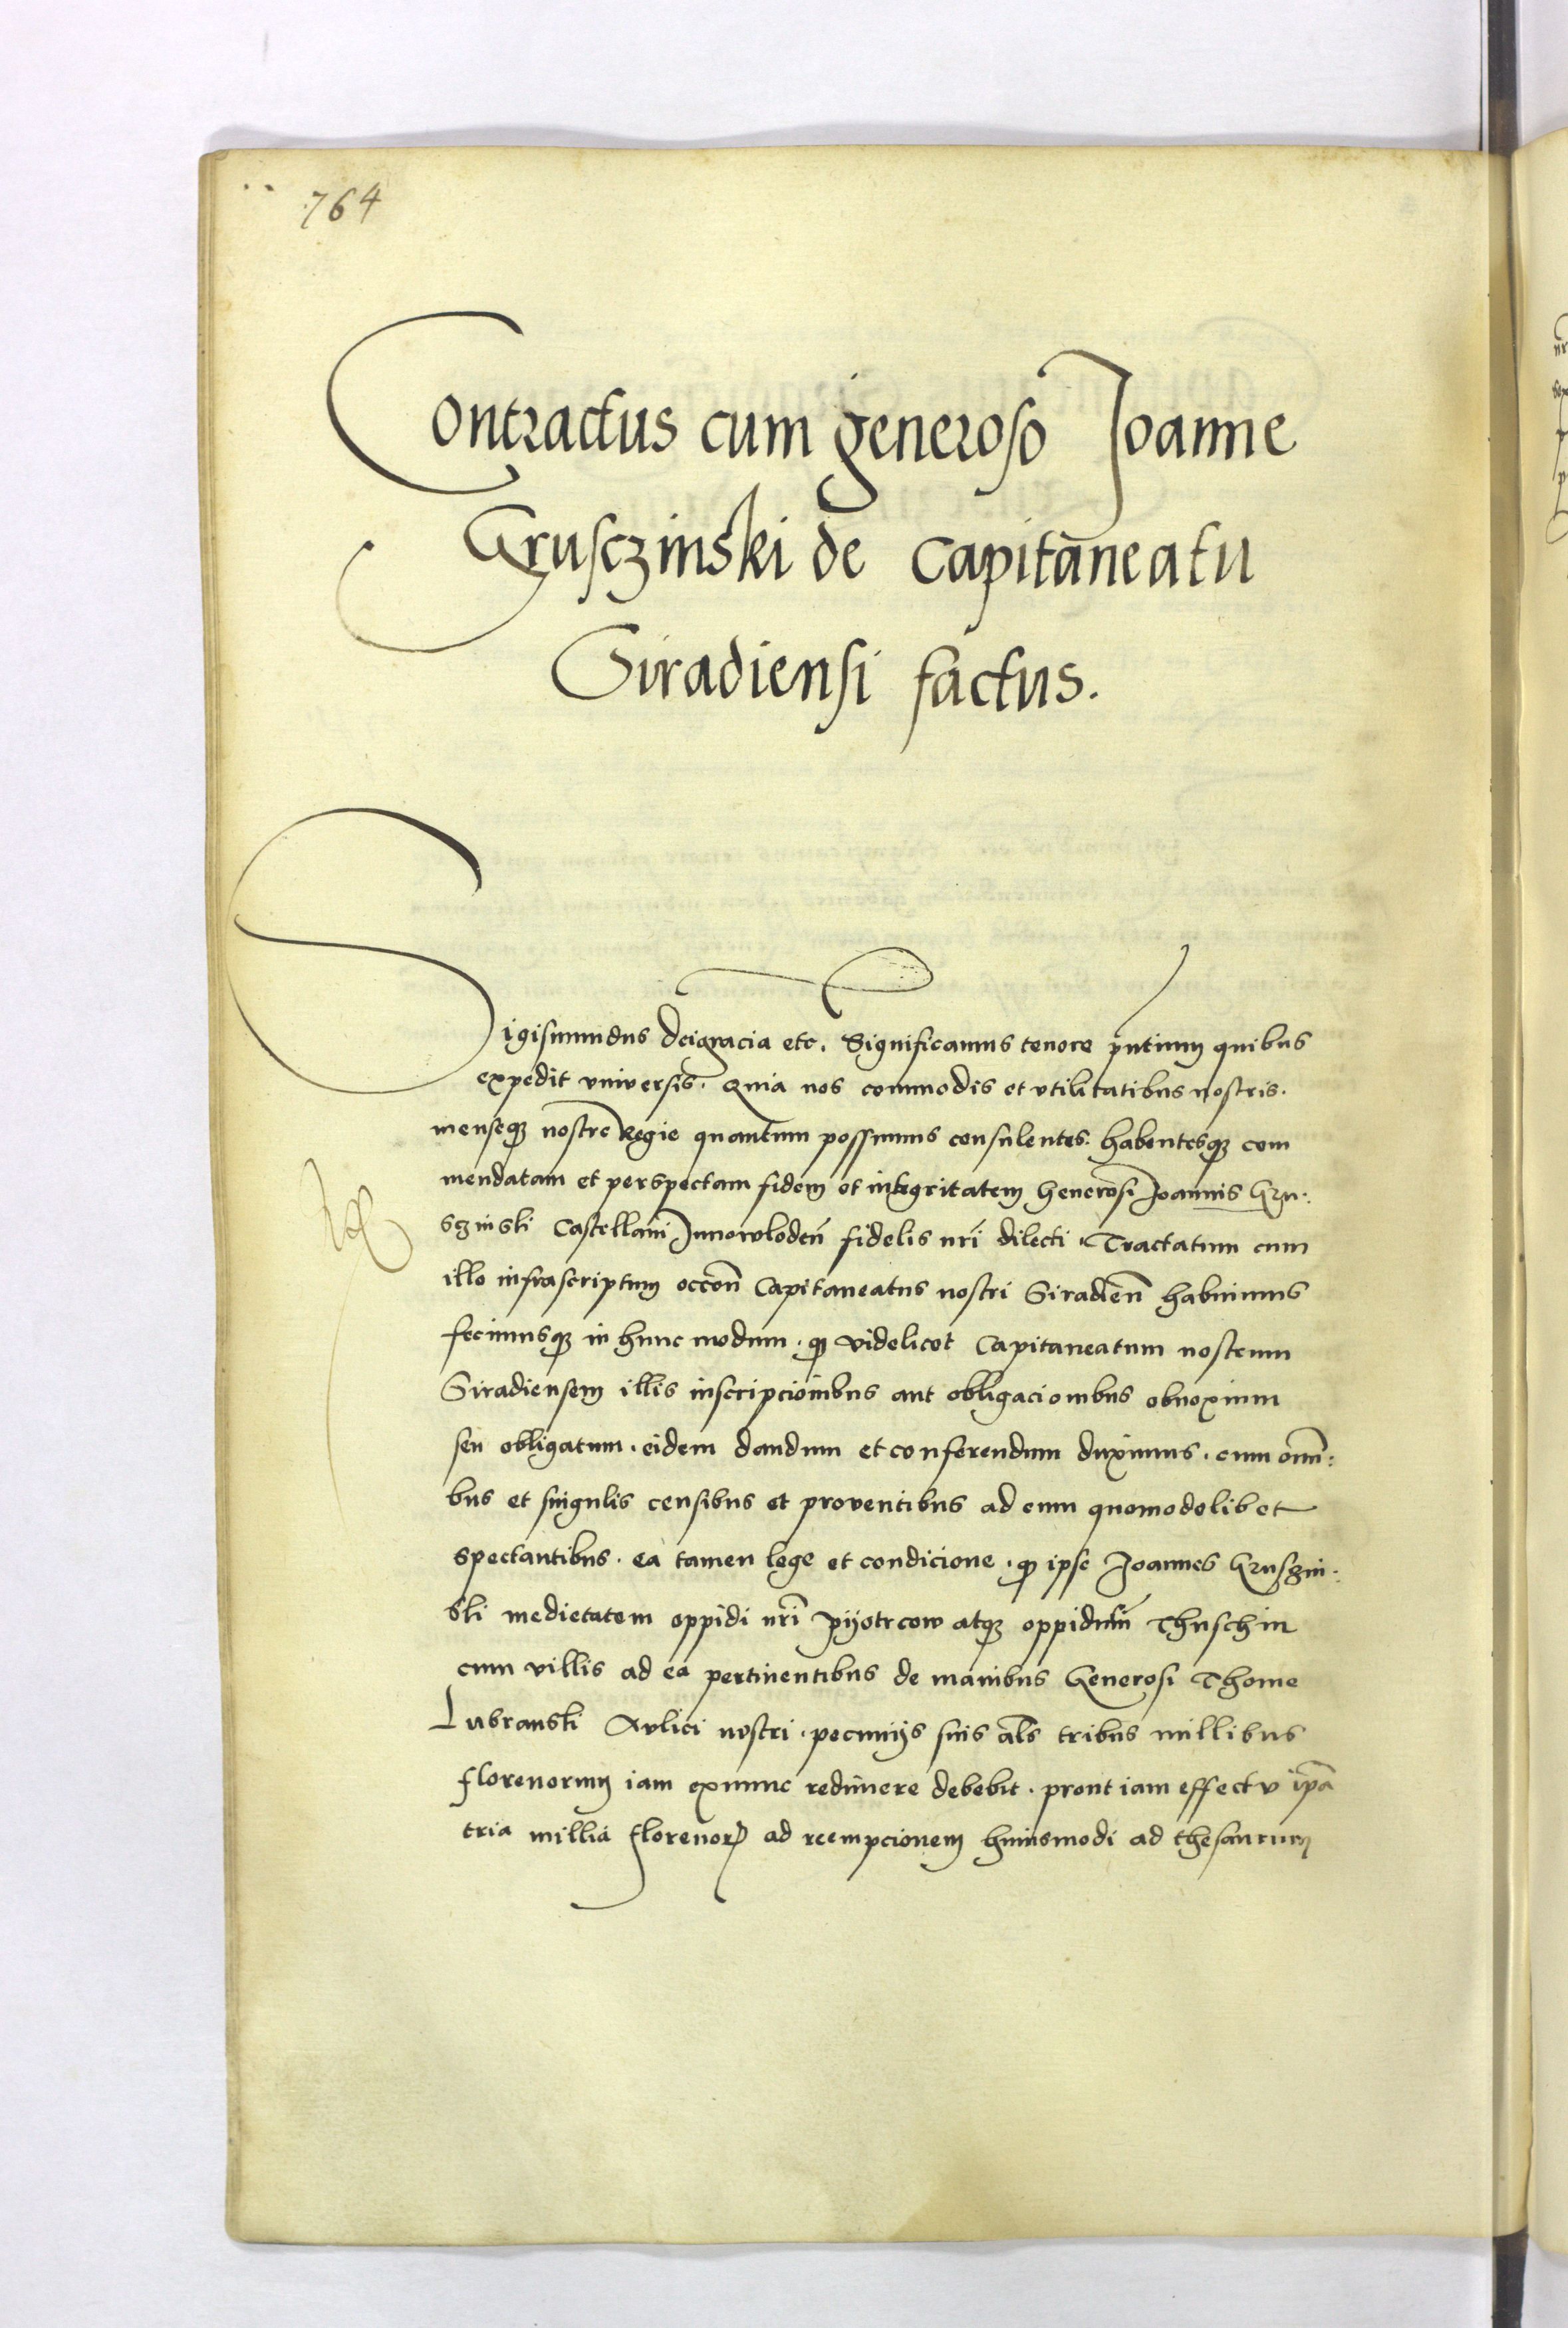 764
Contractus cum generoso Joanne
Grusczinski de Capitaneatu
Siradiensi factus.
Sigismundus Dei gracia etc. Significamus tenore pñtium quibus
expedit vniversis. Quia nos commodis et vtilitatibus nostris.
menseqꝫ nostre Regie quantum possumus consulentes. habentesqꝫ com
mendatam et perspectam fidem et integritatem Generosi Joannis Gru:
sczinski Castellani Junowlodeñ fidelis nr̃i dilecti. Tractatum cum
illo infrascriptum occõn Capitaneatus nostri Siradieñ habuimus
fecimusqꝫ in hunc modum. qꝫ videlicet Capitaneatum nostrum
Siradiensem illis inscripcionibus aut obligacionibus obnoxium
seu obligatum. eidem dandum et conferendum duximus. cum omñi:
bus et singulis censibus et proventibus ad eum quomodolibet
spectantibus. ea tamen lege et condicione. qꝫ ipse Joannes Gruszin:
ski medietatem oppidi nr̃i Pyotrcow atqꝫ oppidum Thuschin
cum villis ad ea pertinentibus de manibus Generosi Thome
Lubranski Aulici nostri. pecunijs suis als̃ tribus millibus
florenorum iam exnunc redimere debebit. prout iam effectu ip̃a
tria millia florenorꝝ ad reempcionem huiusmodi ad thesaurum